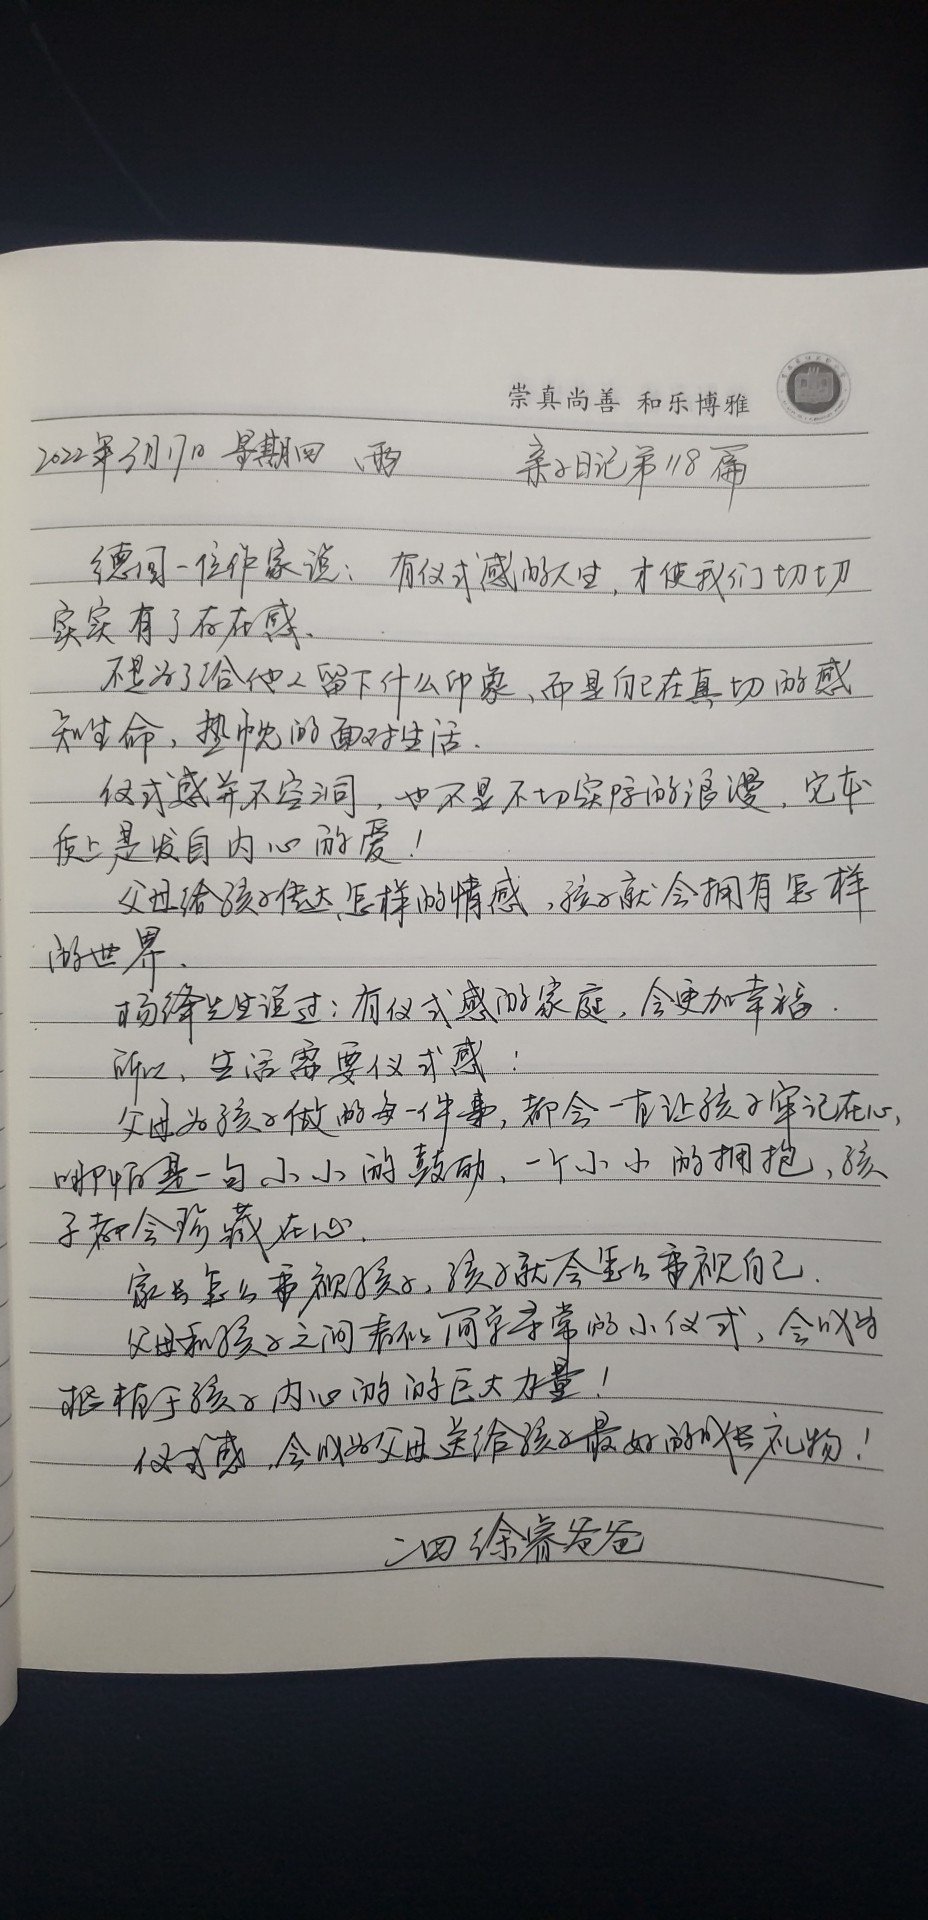 崇真尚善 和乐博雅
2022年3月17日 星期四 雨 亲子日记第118篇
德国一位作家说：有仪式感的人生，才使我们切切
实实有了存在感、
不是为了给他人留下什么印象、而是自己在真切的感
知生命，热忱的面对生活.
仪式感并不空洞，也不是不切实际的浪漫，它本
质上是发自内心的爱！
父母给孩子传达怎样的情感，孩子就会拥有怎样
的世界、
杨绛先生说过：有仪式感的家庭，会更加幸福.
所以、生活需要仪式感！
父母为孩子做的每一件事，都会一直让孩子牢记在心，
哪怕是一句小小的鼓励、一个小小的拥抱，孩
子都会珍藏在心、
家长怎么重视孩子，孩子就会怎么重视自己.
父母和孩子之间看似简单寻常的小仪式，会成为
根植于孩子内心的的巨大力量！
仪式感，会成为父母送给孩子最好的成长礼物！
二四 徐睿爸爸